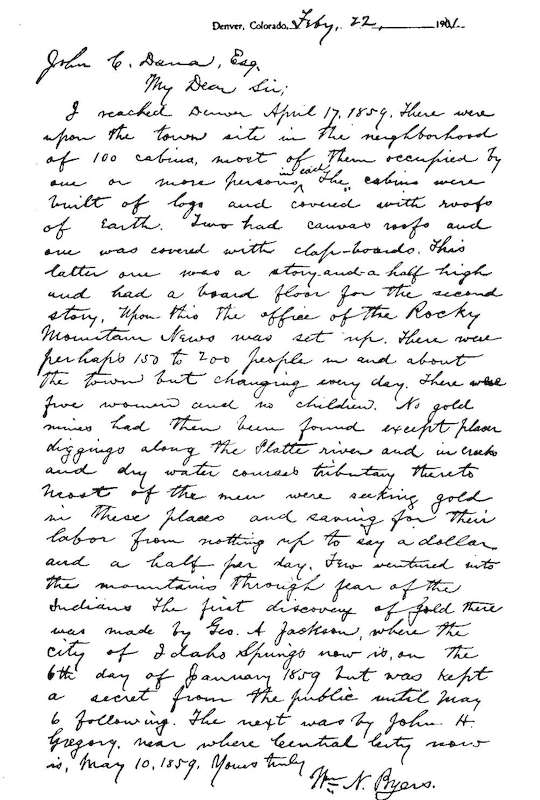 Denver, Colorado, Feby, 22, 1901.
John C. Dana, Esq.
My Dear Sir;
I reached Denver April 17, 1859. There were
upon the town site in the neighborhood
of 100 cabins, most of them occupied by
one or more persons in each. The cabins were
built of logs and covered with roofs
of Earth. Two had canvas roofs and
one was covered with clap-boards. This
latter one was a story-and-a half high
and had a board floor for the second
story. Upon this the office of the Rocky
Mountain News was set up. There were
perhaps 150 to 200 people in and about
the town but changing every day. There were
five women and no children. No gold
mines had then been found except placer
diggings along the Platte river and in creeks
and dry water courses tributary thereto
Most of the men were seeking gold
in these places and saving for their
labor from nothing up to say a dollar
and a half per day. Few ventured into
the mountains through fear of the
Indians The first discovery of gold there
was made by Geo. A Jackson, where the
city of Idaho Springs now is, on the
6th day of January 1859 but was kept
a secret from the public until May
6 following. The next was by John H.
Gregory, near where Central City now
is, May 10, 1859. Yours truly
Wm N. Byers.